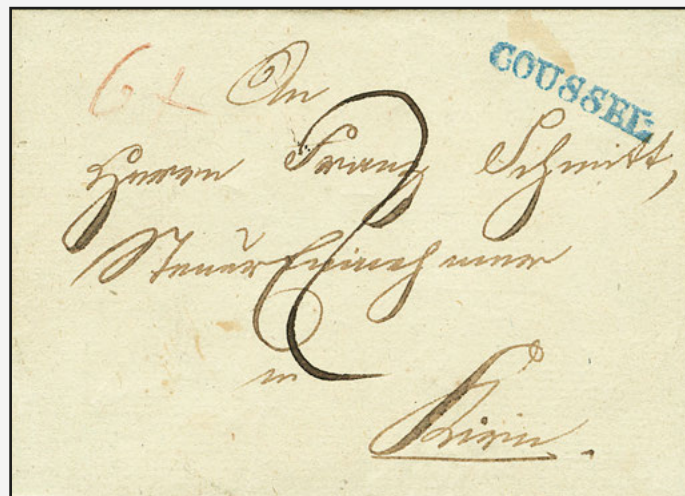 COUSSEL.
6x
An
Herrn Franz Schmitt,
Steuer Einnehmer
2
in
Kirn.